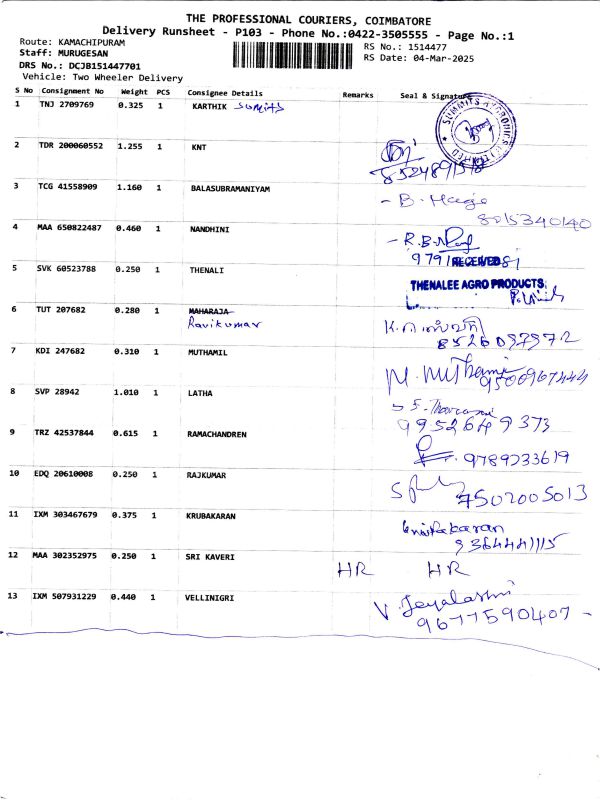 THE PROFESSIONAL COURIERS, COIMBATORE
Delivery Runsheet - P103 - Phone No.:0422-3505555 - Page No.:1
Route: KAMACHIPURAM
RS No.: 1514477
Staff: MURUGESAN
RS Date: 04-Mar-2025
DRS No.: DCJB151447701
Vehicle: Two Wheeler Delivery
S No Consignment No Weight PCS Consignee Details Remarks Seal & Signature
1 TNJ 2709769 0.325 1 KARTHIK
SUMMITS HYGRONICS LIMITED
2 TDR 200060552 1.255 1 KNT
3 TCG 41558909 1.160 1 BALASUBRAMANIYAM
- B.
8015340140
4 MAA 650822487 0.460 1 NANDHINI
- R.B.
9791
RECEIVED
5 SVK 60523788 0.250 1 THENALI
THENALEE AGRO PRODUCTS
6 TUT 207682 0.280 1 MAHARAJA
Ravikumar
8526097972
7 KDI 247682 0.310 1 MUTHAMIL
M. Muthami
9500967444
8 SVP 28942 1.010 1 LATHA
9952649373
9 TRZ 42537844 0.615 1 RAMACHANDREN
9789233619
10 EDQ 20610008 0.250 1 RAJKUMAR
7502005013
11 IXM 303467679 0.375 1 KRUBAKARAN
9364441115
12 MAA 302352975 0.250 1 SRI KAVERI
HR HR
13 IXM 507931229 0.440 1 VELLINIGRI
V. Jeyalashmi
9677590407 -